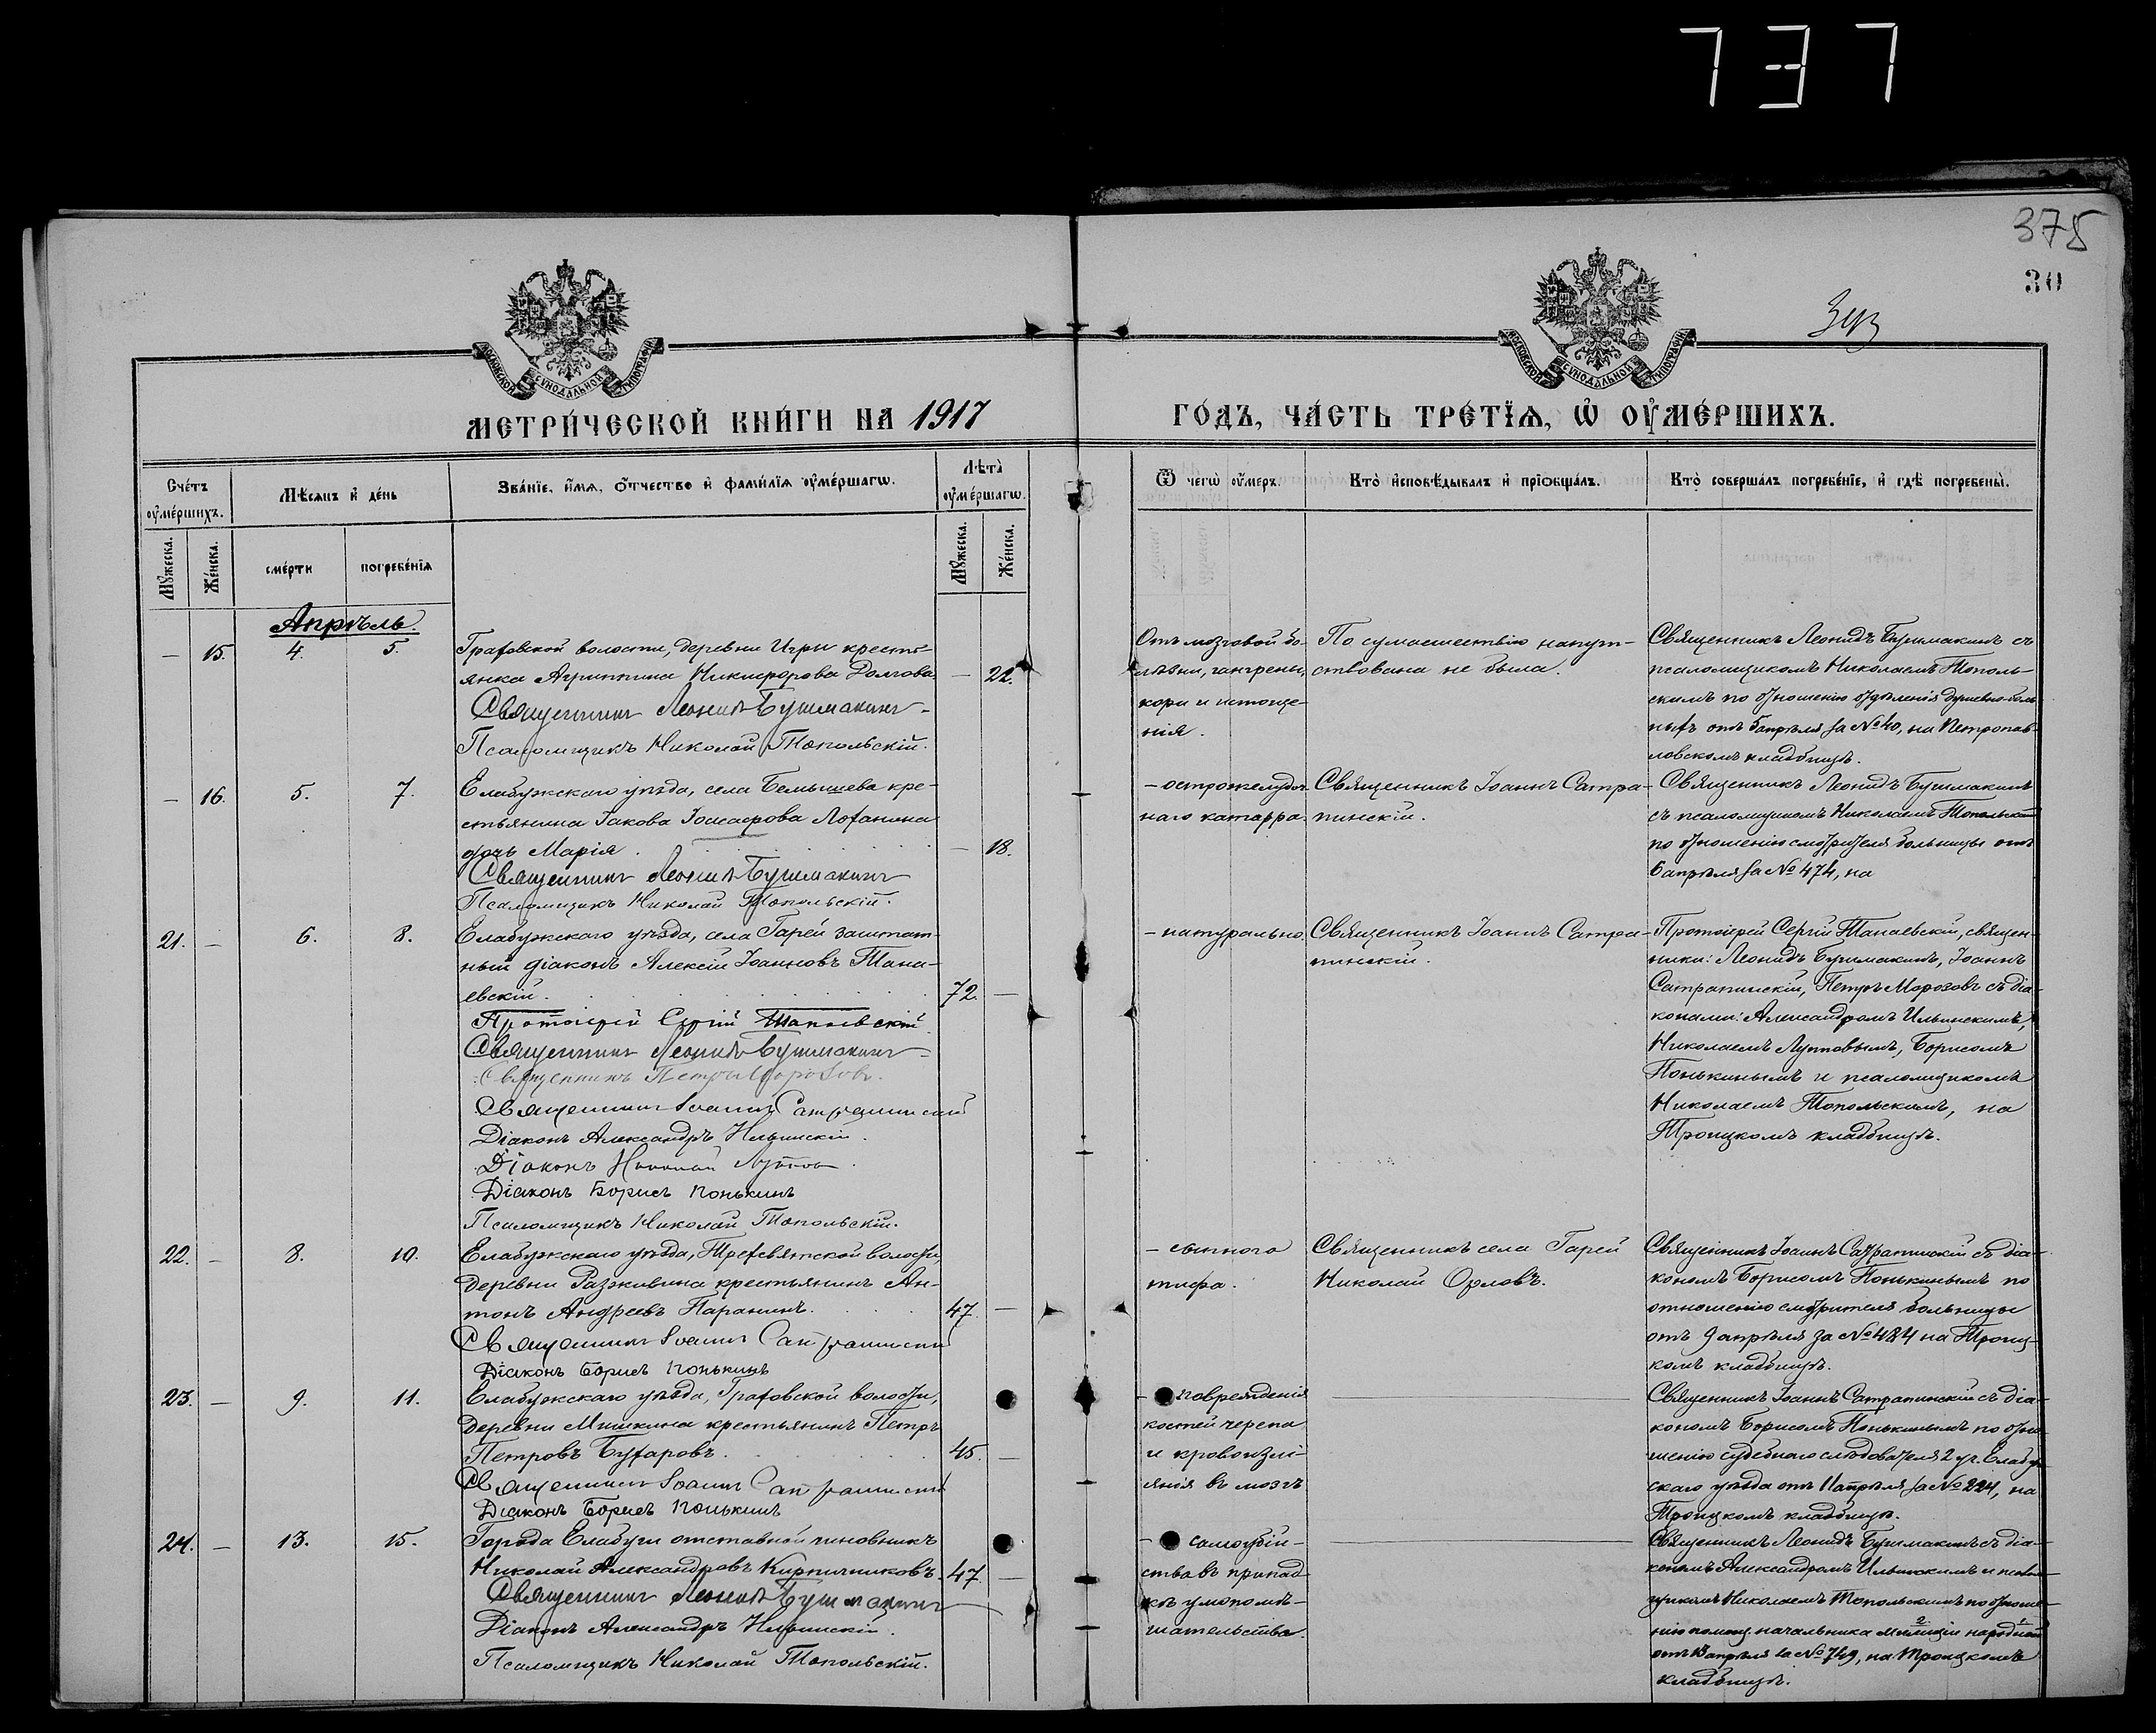 737
375
30
МЕТРИ́ЧЕСКОЙ КНИ́ГИ НА 1917
ГО́ДЪ, ЧА́СТЬ ТРЕ́ТЇѦ, Ѡ҆ ОУ҆МЕ́РШИХЪ.
Сче́тъ оу҆ме́ршихъ.
Мѣ́сѧцъ и҆ де́нь
Зва́нїе, и҆́мѧ, ѻ҆́тчество и҆ фамѝлїѧ оу҆ме́ршагѡ.
Лѣ́та оу҆ме́ршагѡ.
Ѿ чегѡ̀ оу҆́меръ.
Кто̀ и҆сповѣ́дывалъ и҆ прїѡбща́лъ.
Кто̀ соверша́лъ погребе́нїе, и҆ гдѣ̀ погребены̀.
Мꙋ́жеска.
Же́нска.
сме́рти
погребе́нїѧ
Мꙋ́жеска.
Же́нска.
Апрѣль.
— 15. 4. 5.
Граховской волости, деревни Игры кресть-
янка Агриппина Никифорова Долгова — 22.
Священникъ Леонидъ Бушмакинъ
Псаломщикъ Николай Топольскій.
Отъ мозговой бо-
лѣзни, гангрены,
кори и истоще-
нія.
По сумасшествію напут-
ствована не была.
Священникъ Леонидъ Бушмакинъ съ
псаломщикомъ Николаемъ Тополь-
скимъ по отношенію отдѣленія душевно-боль
ныхъ отъ 5 апрѣля за № 40, на Петропав-
ловскомъ кладбищѣ.
— 16. 5. 7.
Елабужскаго уѣзда, села Бемышева кре-
стьянина Іакова Іоасафова Лоханина
дочь Марія. — 18.
Священникъ Леонидъ Бушмакинъ
Псаломщикъ Николай Топольскій.
— острожелудоч-
наго катарра.
Священникъ Іоаннъ Сатра-
пинскій.
Священникъ Леонидъ Бушмакинъ
съ псаломщикомъ Николаемъ Топольскимъ
по отношенію смотрителя больницы отъ
6 апрѣля за № 474, на
21. — 6. 8.
Елабужскаго уѣзда, села Гарей заштат-
ный діаконъ Алексій Іоанновъ Тана-
евскій. 72. —
Протоіерей Сергій Танаевскій
Священникъ Леонидъ Бушмакинъ
Священникъ Петръ Морозовъ.
Священникъ Іоаннъ Сатрапинскій
Діаконъ Александръ Ильинскій.
Діаконъ Николай Лупповъ.
Діаконъ Борисъ Понькинъ
Псаломщикъ Николай Топольскій.
— натурально.
Священникъ Іоаннъ Сатра-
пинскій.
Протоіерей Сергій Танаевскій, священ-
ники: Леонидъ Бушмакинъ, Іоаннъ
Сатрапинскій, Петръ Морозовъ съ діа-
конами: Александромъ Ильинскимъ,
Николаемъ Лупповымъ, Борисомъ
Понькинымъ и псаломщикомъ
Николаемъ Топольскимъ, на
Троицкомъ кладбищѣ.
22. — 8. 10.
Елабужскаго уѣзда, Трехсвятской волости,
деревни Разживина крестьянинъ Ан-
тонъ Андреевъ Паранинъ. 47. —
Священникъ Іоаннъ Сатрапинскій
Діаконъ Борисъ Понькинъ
— сыпного
тифа.
Священникъ села Гарей
Николай Орловъ.
Священникъ Іоаннъ Сатрапинскій съ діа-
кономъ Борисомъ Понькинымъ по
отношенію смотрителя больницы
отъ 9 апрѣля за № 484 на Троиц-
комъ кладбищѣ.
23. — 9. 11.
Елабужскаго уѣзда, Граховской волости,
деревни Мишкина крестьянинъ Петръ
Петровъ Бухаровъ. 45. —
Священникъ Іоаннъ Сатрапинскій
Діаконъ Борисъ Понькинъ
— поврежденія
костей черепа
и кровоизлі-
янія въ мозгъ
Священникъ Іоаннъ Сатрапинскій съ діа-
кономъ Борисомъ Понькинымъ по отно-
шенію судебнаго слѣдователя 2 уч. Елабуж
скаго уѣзда отъ 11 апрѣля за № 224, на
Троицкомъ кладбищѣ.
24. — 13. 15.
Города Елабуги отставной чиновникъ
Николай Александровъ Кирпичниковъ. 47. —
Священникъ Леонидъ Бушмакинъ
Діаконъ Александръ Ильинскій.
Псаломщикъ Николай Топольскій.
— самоубій-
ства въ припад-
кѣ умопомѣ-
шательства.
Священникъ Леонидъ Бушмакинъ съ діа-
кономъ Александромъ Ильинскимъ и псалом-
щикомъ Николаемъ Топольскимъ по отноше-
нію помощ. начальника милиціи народной
отъ 15 апрѣля за № 749, на Троицкомъ
кладбищѣ.